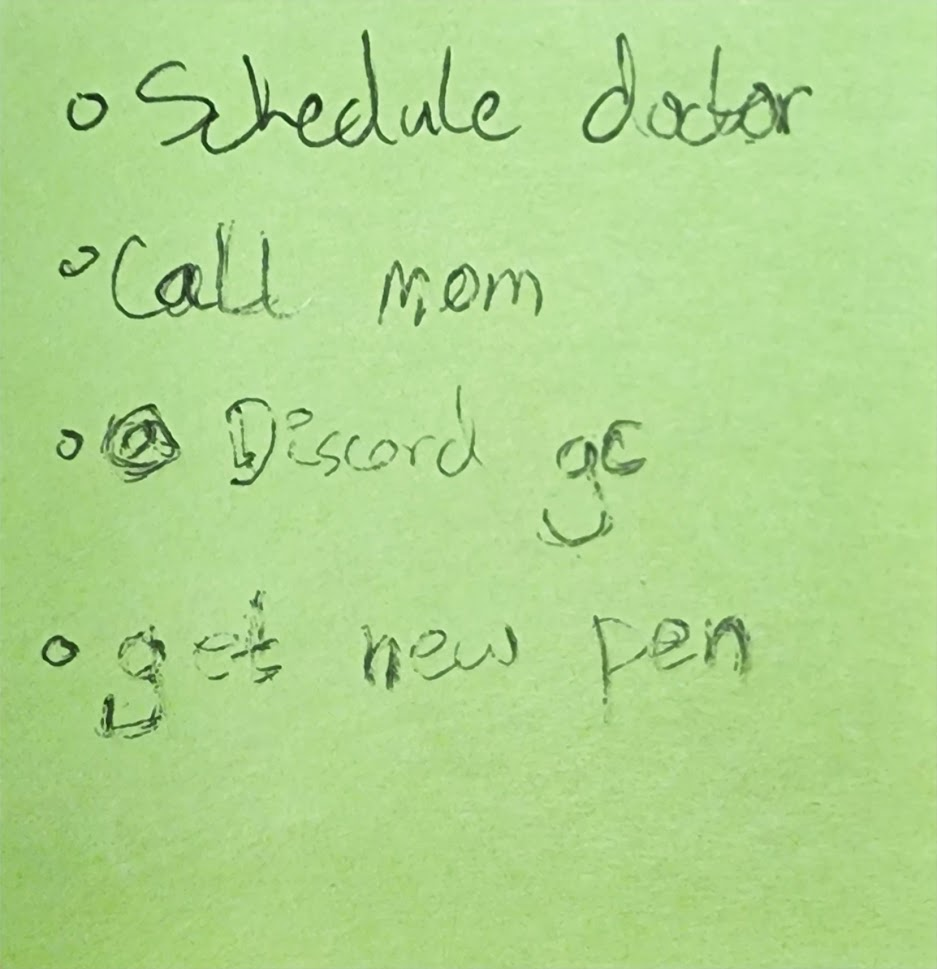 o Schedule doctor
o Call mom
o @ Discord gc
o get new pen